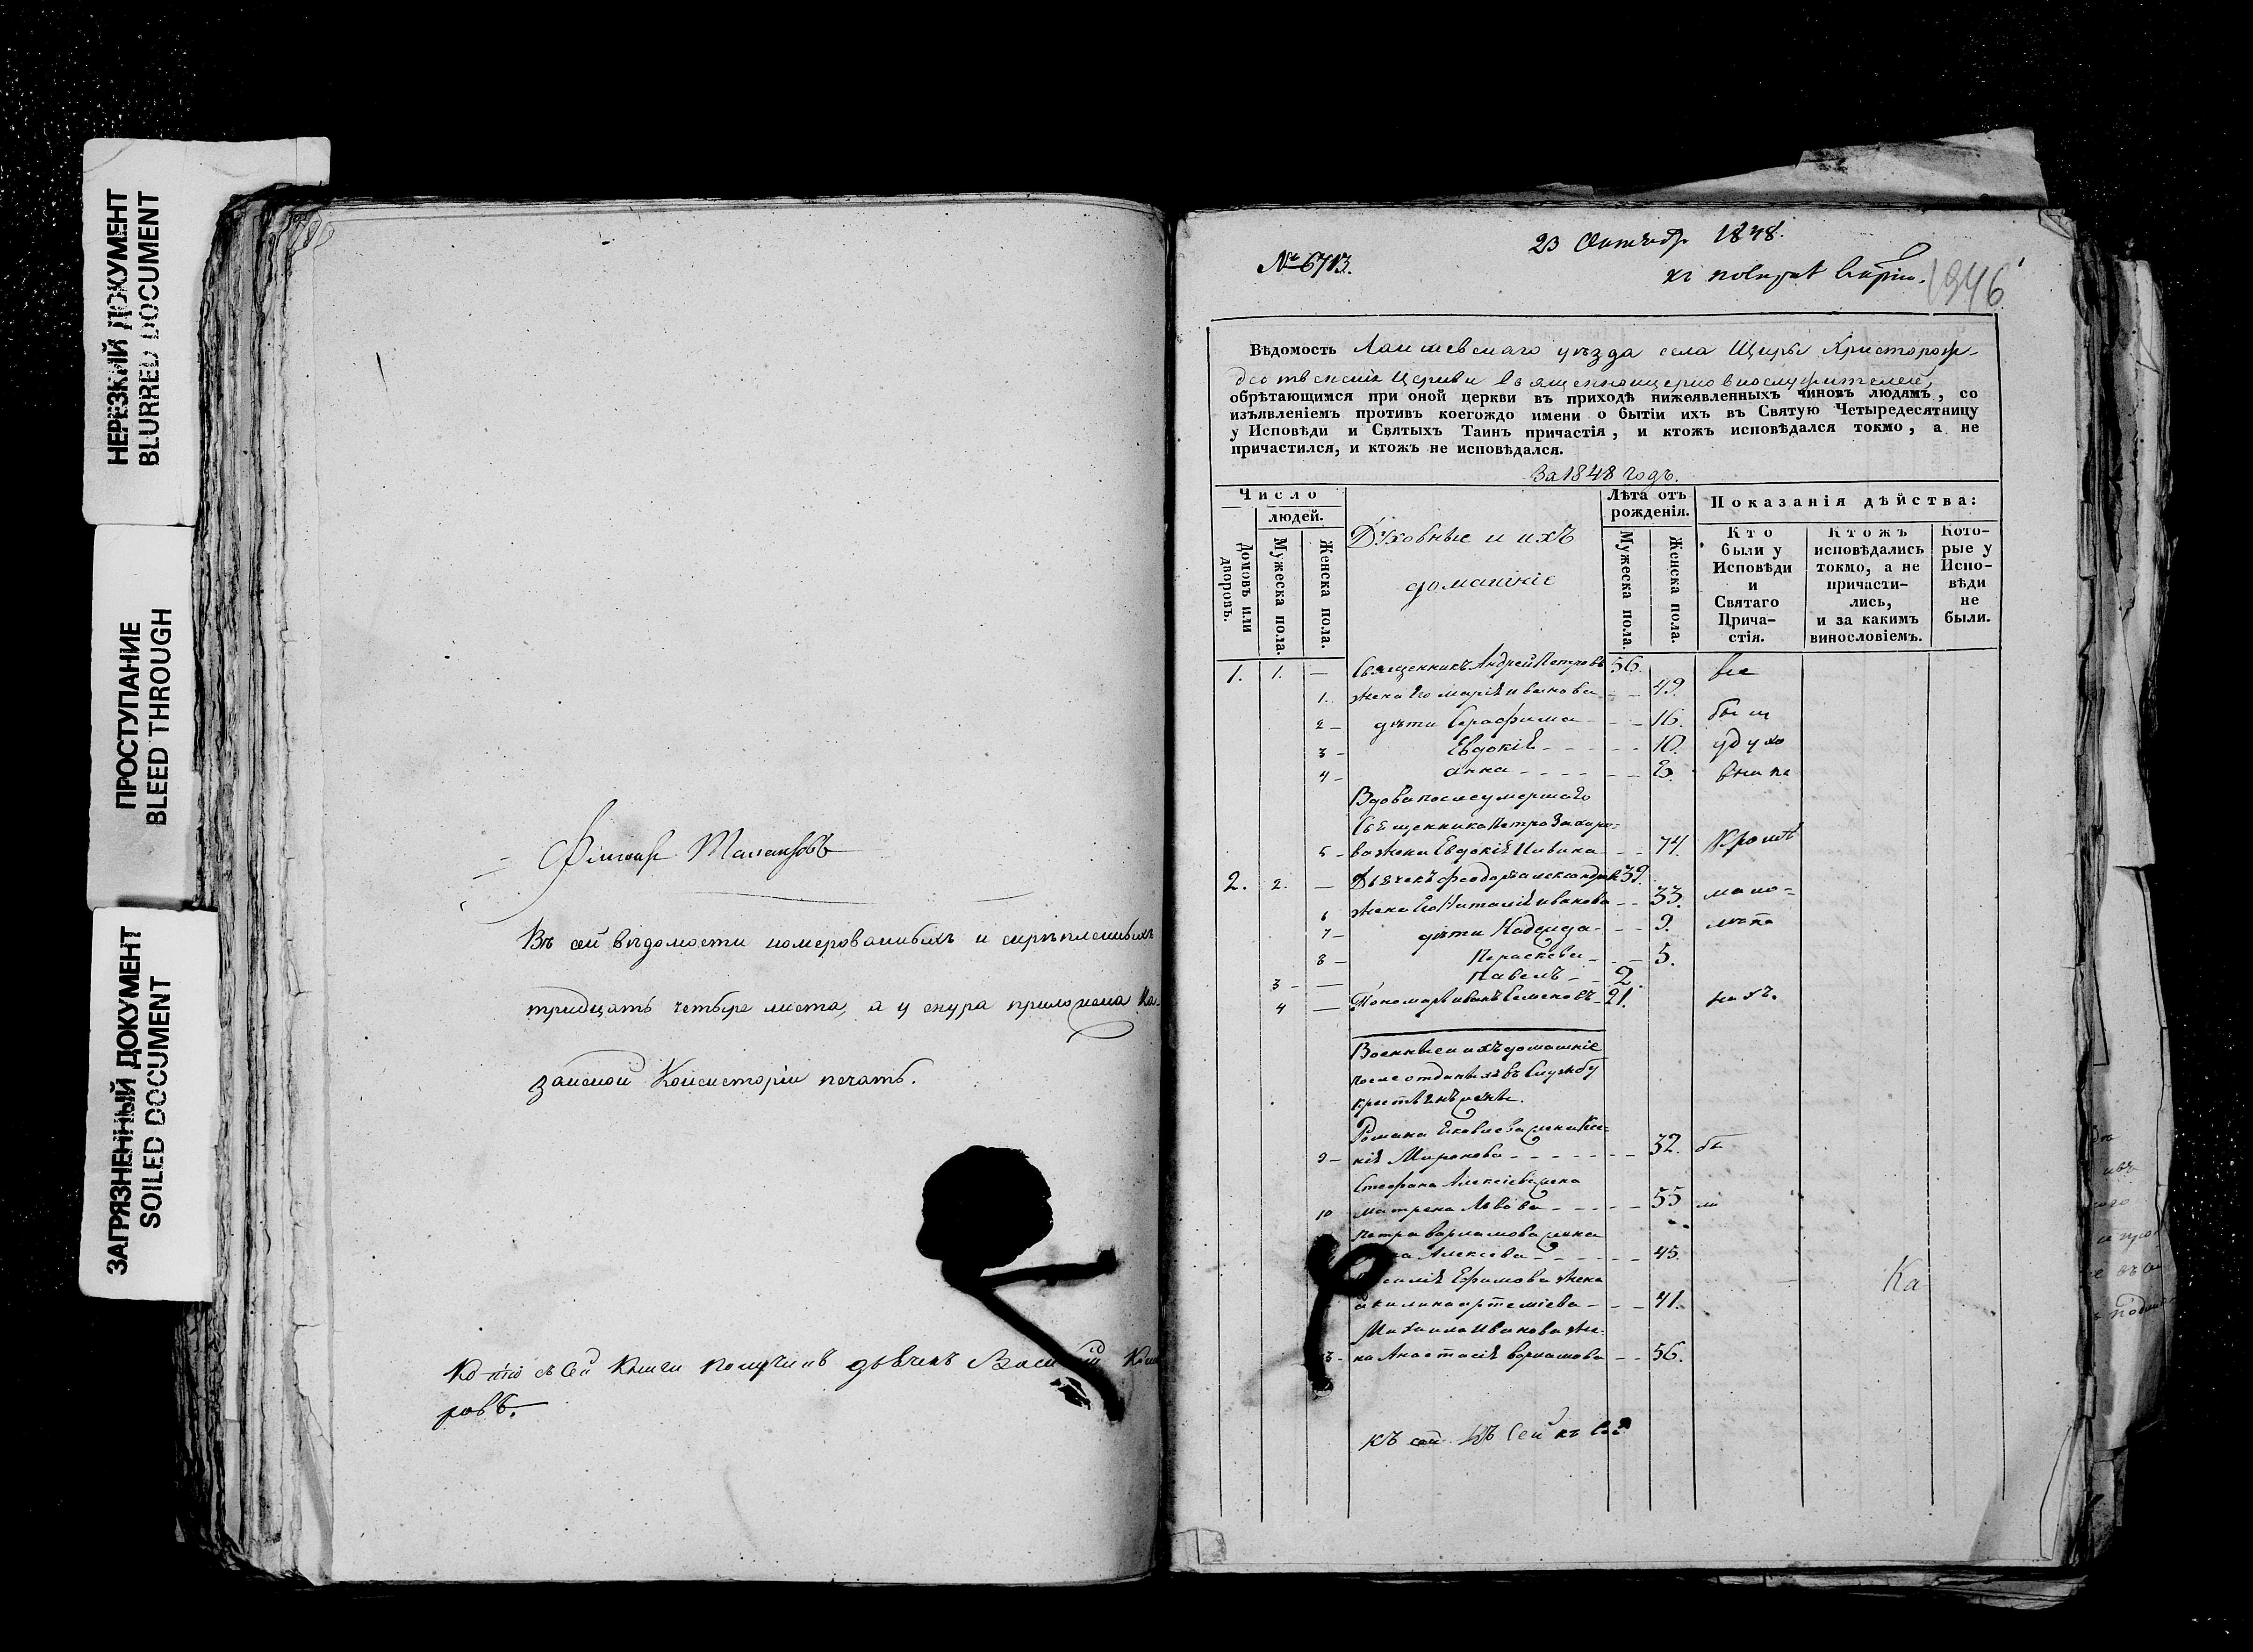 НЕРЕЗКИЙ ДОКУМЕНТ
BLURRED DOCUMENT
ПРОСТУПАНИЕ
BLEED THROUGH
ЗАГРЯЗНЕННЫЙ ДОКУМЕНТ
SOILED DOCUMENT
Въ сей вѣдомости номерованныхъ и скрѣпленныхъ
тридцать четыре листа, а у снура приложена Ка-
занской Консисторіи печать.
Копію съ сей книги получилъ дьячекъ Василій
ровъ.
№ 6713.
23 Октября 1848.
1946
Вѣдомость Лаишевскаго уѣзда села Щурьи Христорож-
дественской церкви священноцерковнослужителей,
обрѣтающимся при оной церкви въ приходѣ нижеявленныхъ чиновъ людямъ, со
изъявленіемъ противъ коегождо имени о бытіи ихъ въ Святую Четыредесятницу
у Исповѣди и Святыхъ Таинъ причастія, и ктожъ исповѣдался токмо, а не
причастился, и ктожъ не исповѣдался.
За 1848 годъ.
Число
людей.
Домовъ или дворовъ.
Мужеска пола.
Женска пола.
Духовные и ихъ
домашніе
Лѣта отъ рожденія.
Мужеска пола.
Женска пола.
Показанія дѣйства:
Кто были у Исповѣди и Святаго Прича-стія.
Ктожъ исповѣдались токмо, а не причасти-лись, и за какимъ винословіемъ.
Кото-рые у Испо-вѣди не были.
1. 1. — Священникъ Андрей Петровъ 56. все
1. жена его Марія Иванова 49.
2 дѣти Серафима 16. были
3 Евдокія 10. у духо
4 Анна 8. вника
Вдова после умершаго
Священника Петра Захаро-
5 ва жена Евдокія 74. Кромѣ
2. 2. — Дьячекъ Феодоръ Александровъ 39.
6 жена его Наталія Иванова 33. мало-
7 дѣти Надежда 9. лѣтн
8 Параскева 5.
3 — Павелъ 2.
4 — Пономарь Иванъ Семеновъ 21. ихъ.
Военные и ихъ домашніе
после отданыхъ въ службу
крестьянъ жены.
Романа Яковлева жена Ксе-
9 нія Миронова 32. бы
Стефана Алексіева жена
10 Матрена Львова 55 ли
Петра Варламова жена
Алексіева 45.
Василія Ефимова жена
Акилина Артеміева 41.
Михаила Иванова же-
на Анастасія Варламова 56.
Ка
къ сей къ сей къ сей